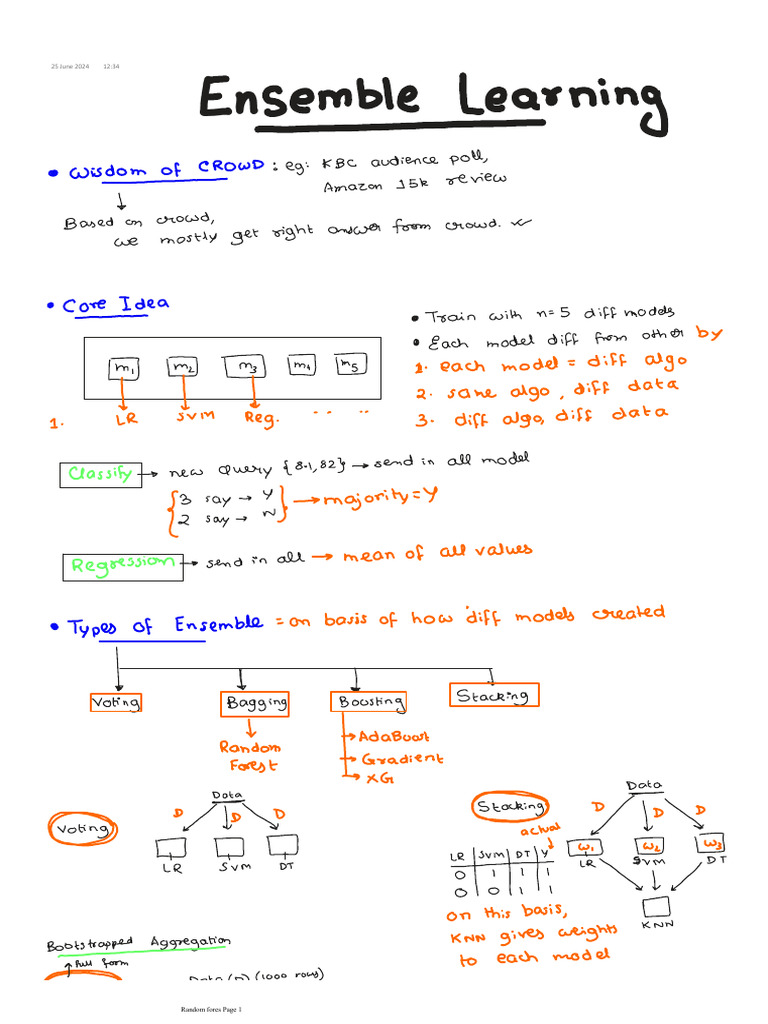 25 June 2024 12:34
Ensemble Learning
• Wisdom of CROWD : eg: KBC audience poll,
Amazon 15k review
Based on crowd,
we mostly get right answer from crowd. ✓
• Core Idea
• Train with n=5 diff models
• Each model diff from other by
m1 m2 m3 m4 m5
1. each model = diff algo
2. same algo, diff data
1. LR SVM Reg. -- --
3. diff algo, diff data
Classify → new query {8.1, 82} → send in all model
3 say → Y
2 say → N
→ majority = Y
Regression → send in all → mean of all values
• Types of Ensemble = on basis of how diff models created
Voting Bagging Boosting Stacking
Random Forest
→ AdaBoost
→ Gradient
→ XG
Voting
Data
D D D
LR SVM DT
Stacking
Data
D D D
actual
LR SVM DT Y
0 1 1 1
0 0 1 1
w1 w2 w3
LR SVM DT
KNN
on this basis,
KNN gives weights
to each model
Bootstrapped Aggregation
↑ full form
Data (n) (1000 rows)
Random fores Page 1